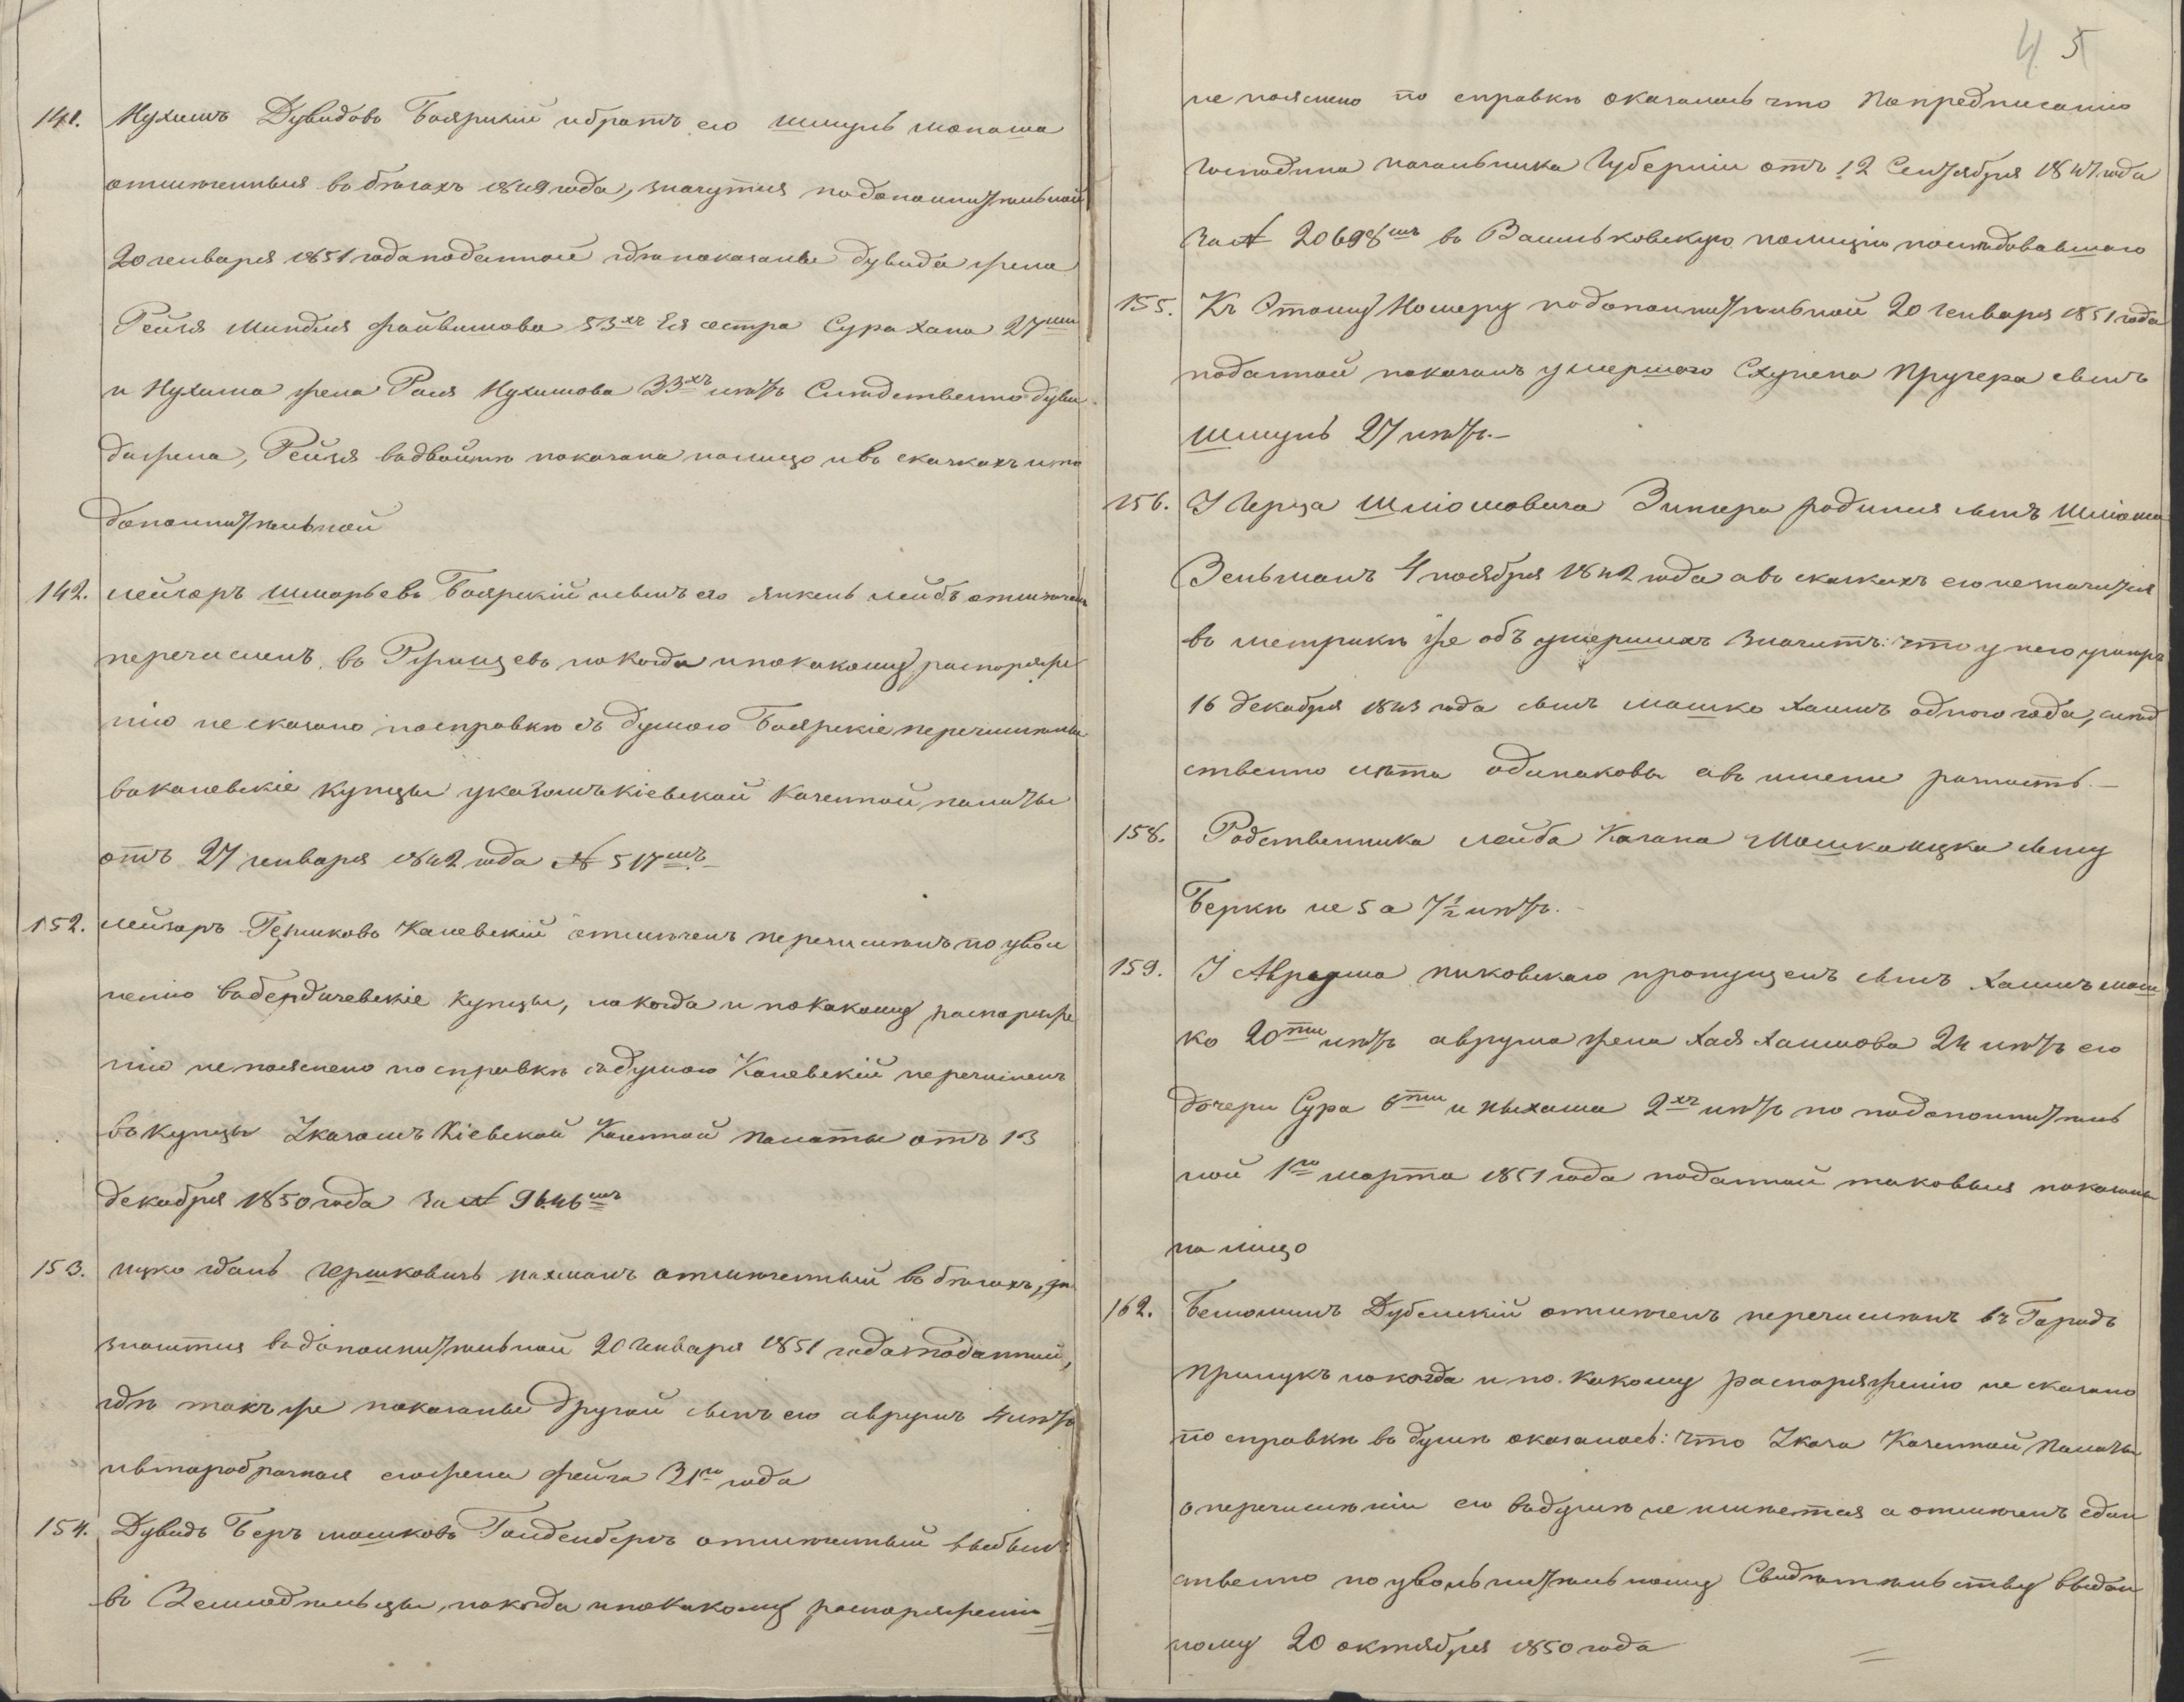 141. Нухимъ Дувидовъ Боярскій и братъ его Шмуль Мопаша
отмѣченныя въ бѣгахъ 1849 года, значутся по дополнительной
20 генваря 1851 года поданной гдѣ показаны Дувида жена
Рейзя Миндля Файвишова 53хъ Ея сестра Сура Хана 27ми
и Нухима жена Рася Нухимова 33хъ лѣтъ Слѣдственно Дуви
да жена, Рейзя вадвойнѣ показана налицо и въ сказкахъ и по
дополнительной
142. Лейзоръ Шморьевъ Боярскій и сынъ его Янкель Лейбъ отмѣчены
перечисленъ въ Ржищевъ но когда и по какому распоряже
нію не сказано по справки съ думою Боярскіе перечислены
въ каневскіе купцы указомъ Кіевской Казенной палаты
отъ 27 генваря 1842 года № 517мъ.
152. Лейзоръ Гершковъ Каневскій отмѣченъ перечисленъ по уволь
ненію въ бердичевскіе купцы, но когда и по какому распоряже
нію не пояснено по справки съ думою Каневскій перечисленъ
въ купцы Указомъ Кіевской Казенной Палаты отъ 13
декабря 1850 года за № 9646мъ
153. Ицко Гдаль Гершковичъ Нахманъ отмѣченный въ бѣгахъ,
значится въ дополнительной 20 генваря 1851 года поданной,
гдѣ такъ же показаны другой сынъ его Аврумъ 4 лѣтъ
и втаробрачная его жена Фейга 31го года
154. Дувидъ Беръ Мошковъ Голденбергъ отмѣченный выбылъ
въ Земледѣльцы, но когда и по какому распоряженію
45
не пояснено по справки оказалось что По предписанію
Господина Начальника Губерніи отъ 12 Сентября 1847 года
за № 20698мъ въ Васильковскую полицію послѣдовавшаго
155. Къ Этому Номеру по дополнительной 20 генваря 1851 года
поданной показанъ умершого Схулепа Пругера сынъ
Шмуль 27 лѣтъ.
156. У Герца Шліомовича Зингера родился сынъ Шліома
Зельманъ 4 ноября 1842 года а въ сказкахъ его не значится
въ метрики же объ умершихъ значитъ: что у него умеръ
16 декабря 1843 года сынъ Мошко Хаимъ одного года, слѣд
ственно лѣта одинаковы а въ имени разность.
158. Родственника Лейба Кагана Мошка Ицка сыну
Берки не 5 а 7½ лѣтъ.
159. У Аврума Пиковскаго пропущенъ сынъ Хаимъ Мош
ко 20ти лѣтъ Аврума жена Хая Хаимова 24 лѣтъ его
дочери Сура 6ти и Ныхама 2хъ лѣтъ но по дополнитель
ной 1го марта 1851 года поданной таковыя показаны
на лицо
162. Беньоминъ Дубенскій отмѣченъ перечисленъ въ Городъ
Прилукъ но когда и по какому распоряженію не сказано
по справки въ думѣ оказалось: что Указа Казенной Палаты
о перечисленіи его въ думѣ не имѣется а отмѣченъ един
ственно по увольнительному Свидѣтельству выдан
ному 20 октября 1850 года